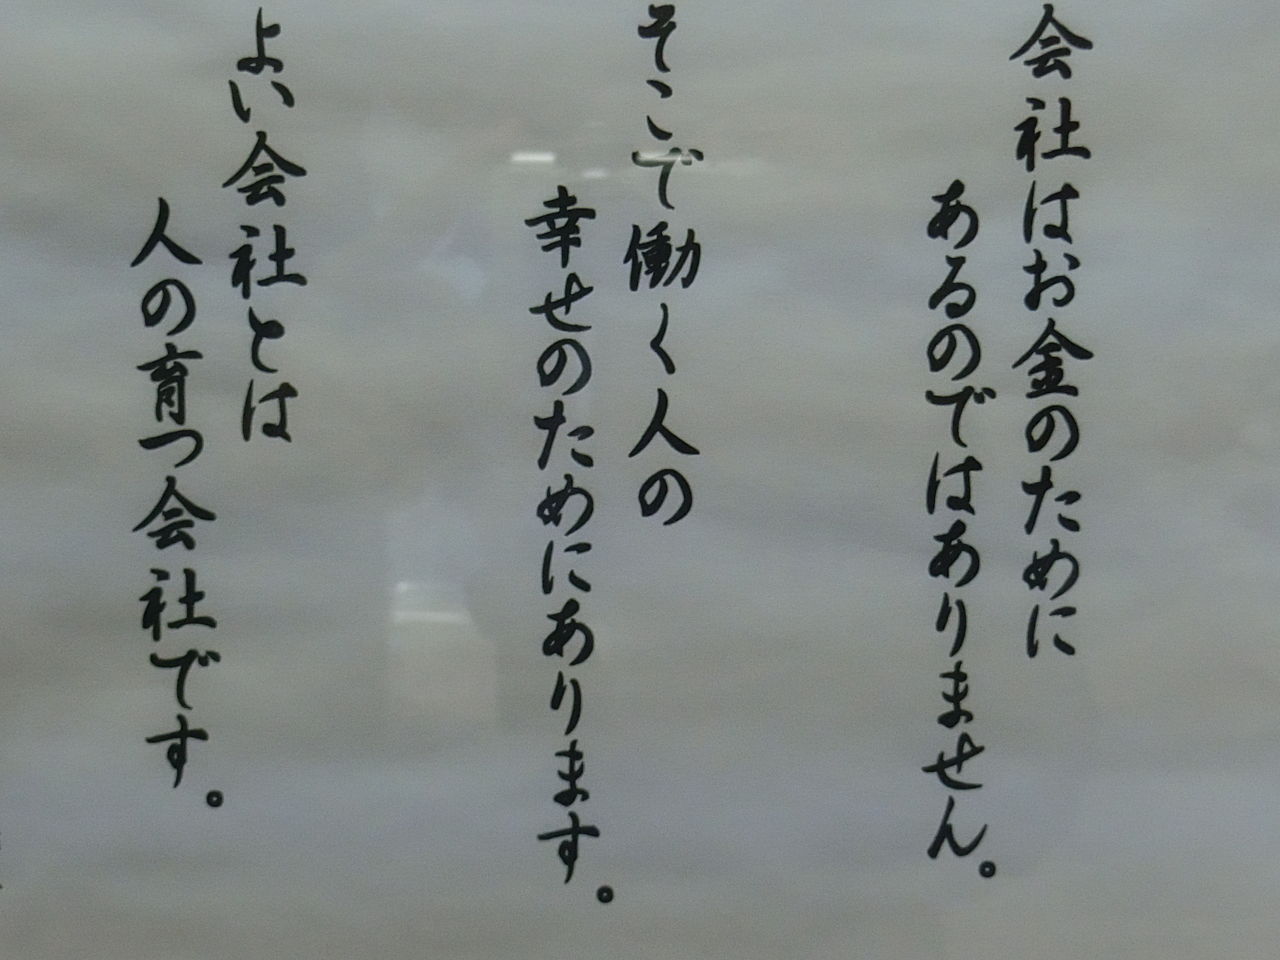 会社はお金のために
あるのではありません。
そこで働く人の
幸せのためにあります。
よい会社とは
人の育つ会社です。